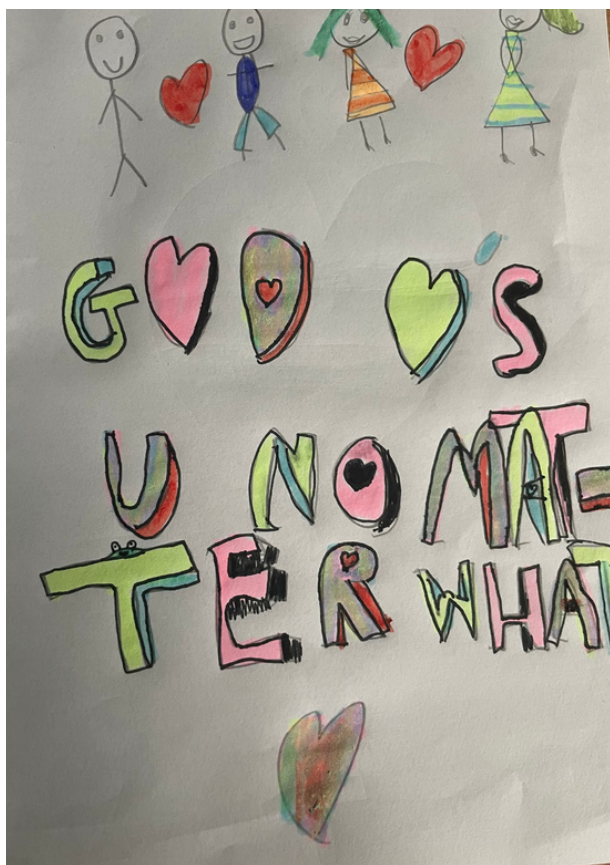 G♥D ♥'S
U NO MAT-
TER WHAT